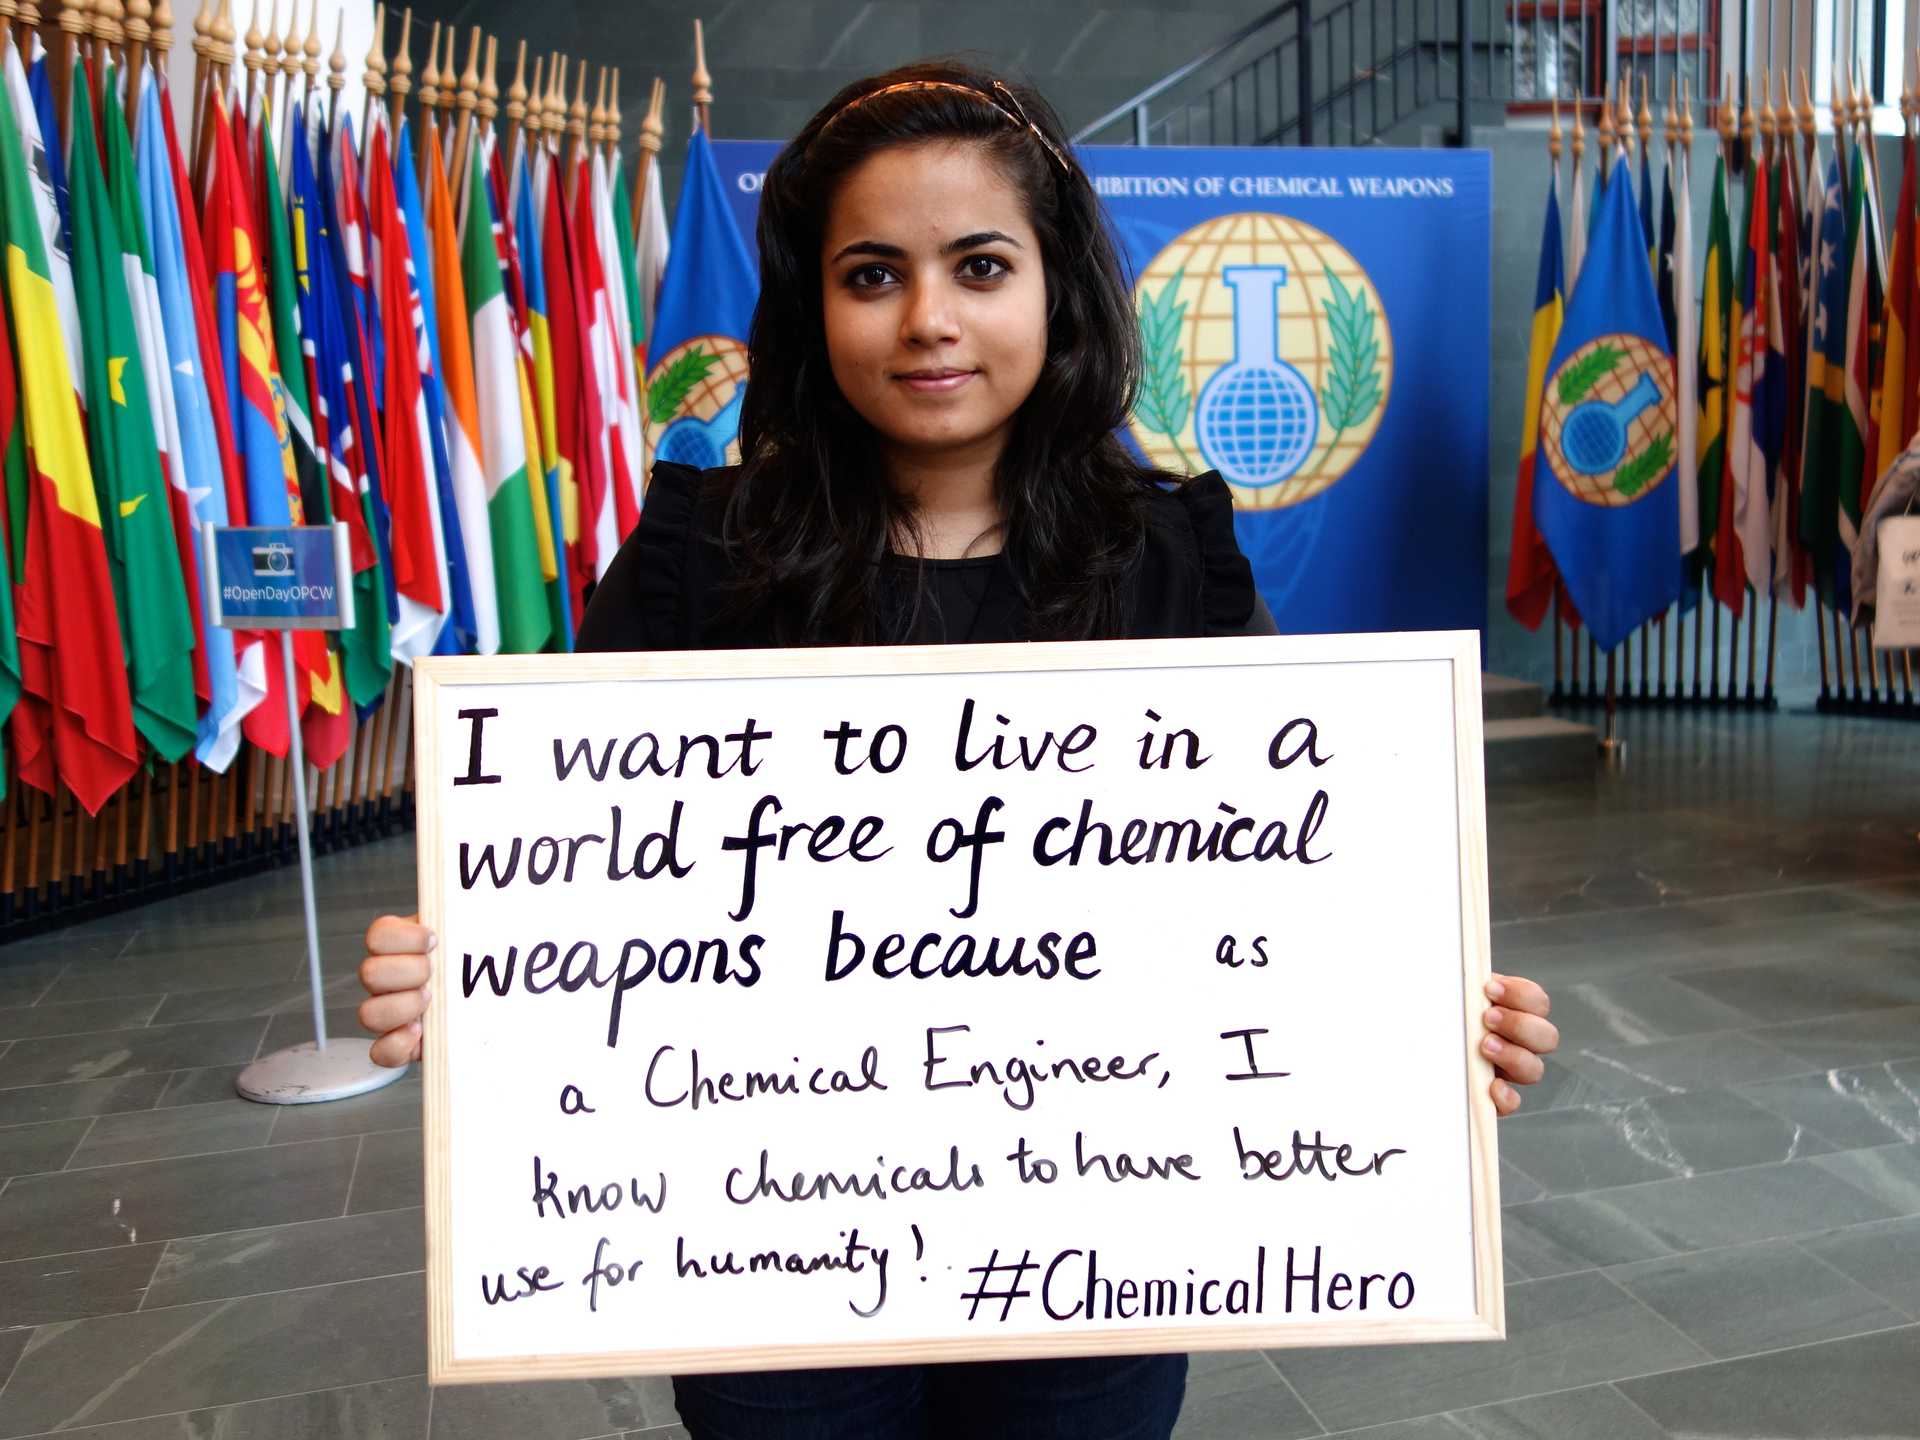 HIBITION OF CHEMICAL WEAPONS
#OpenDayOPCW
I want to live in a
world free of chemical
weapons because as
a Chemical Engineer, I
know chemicals to have better
use for humanity! #ChemicalHero